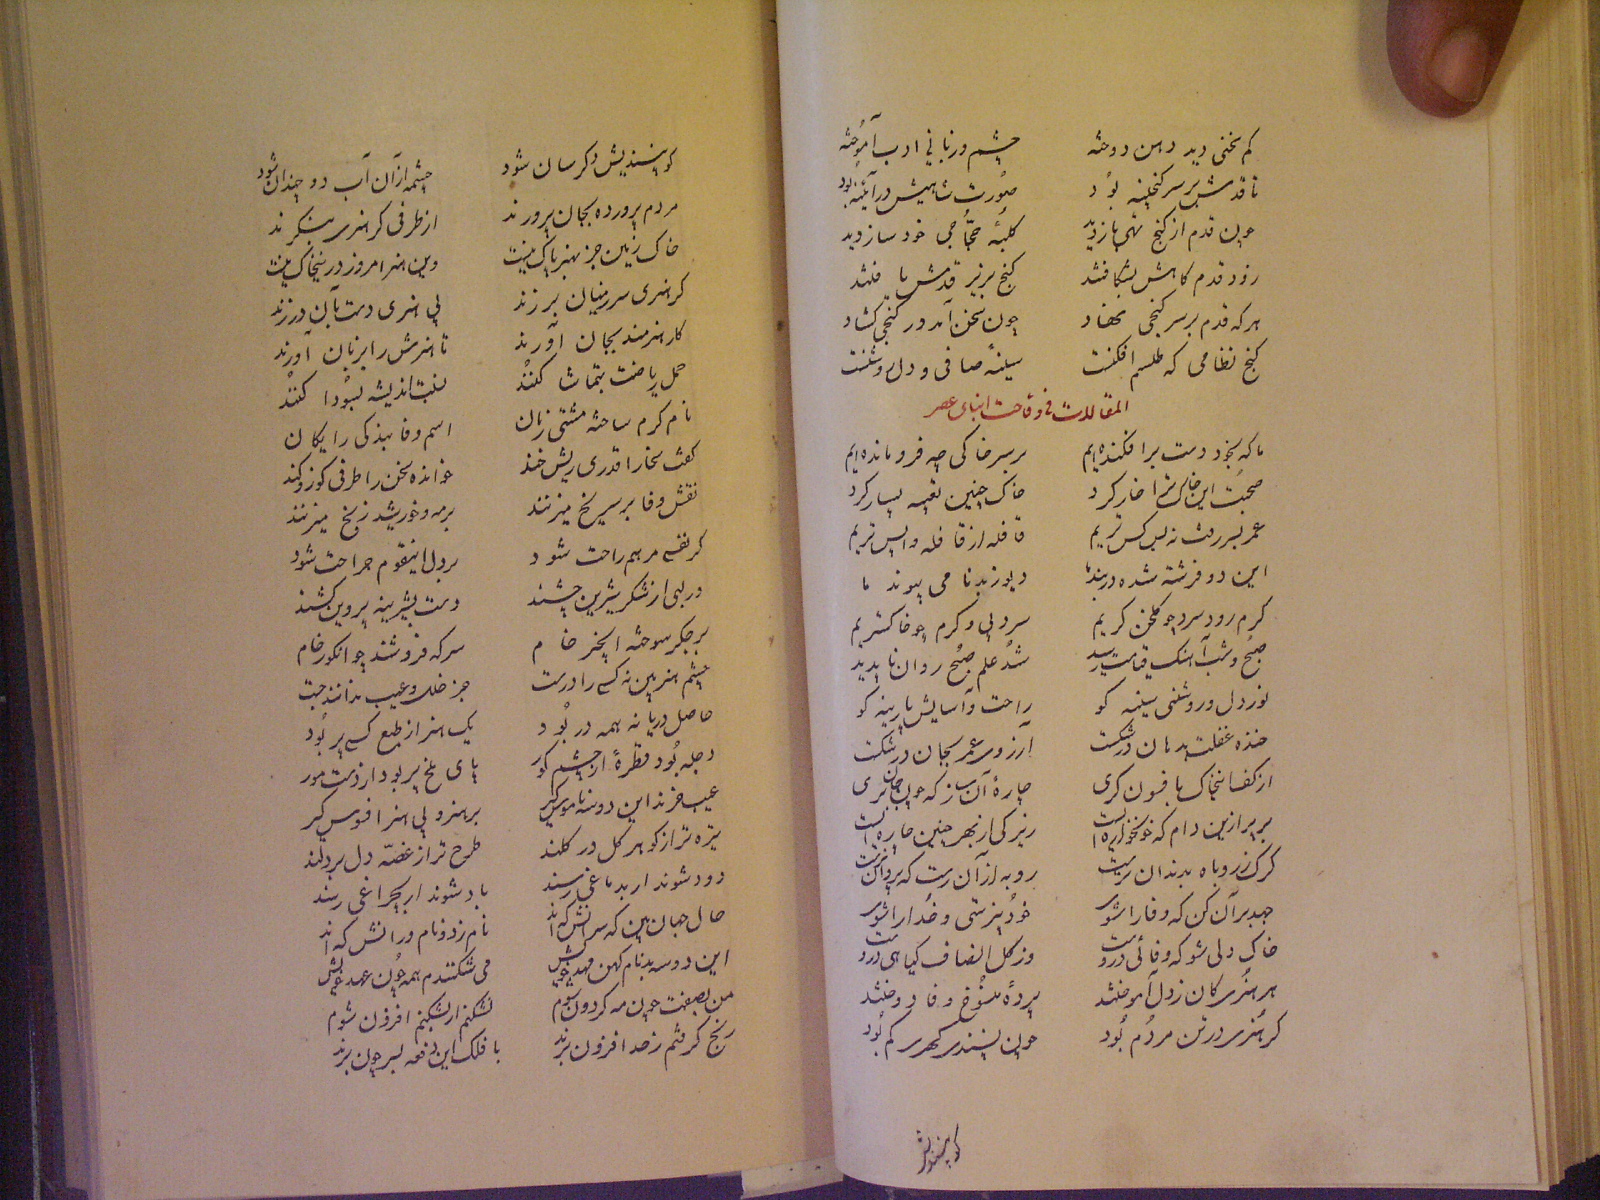 کم سخنی دید دهن دوخته چشم و زبانی ادب آموخته
تا قدمش بر سر کنجینه بود صورت شاهیش در آینه بود
چون قدم از کنج تهی باز دید کلبهٔ حجاجی خود ساز دید
زود قدم کاهش بشکافتند کنج بزیر قدمش یافتند
هرکه قدم بر سر کنجی نهاد چون سخن آمد در کنجی کشاد
کنج نظامی که طلسم افکنست سینهٔ صافی و دل روشنست
المقالات فی وقاحت ابنای عصر
ما که بخود دست برافکنده‌ایم بر سر خاکی چه فرو مانده‌ایم
صحبت این خاک ترا خار کرد خاک چنین تعبیه بسیار کرد
عمر بسر رفت نه بس کس تریم قافله از قافله واپس تریم
این دو فرشته شده در بند ما دیو ز بدنامی پیوند ما
کرم رو و سرد چو کلخن کریم سرد پی و کرم چو خاکستریم
صبح شب آهنک قیامت رسید شد علم صبح روان ناپدید
نور دل و روشنی سینه کو راحت و آسایش پارینه کو
خنده غفلت بدهان درشکست آرزوی عمر بجان درشکست
از کف این خاک بافسون کری چارهٔ آن ساز که چون جان بری
بر پر ازین دام که خونخواره است زیرکی از بهر چنین چاره است
کرک ز روباه بدندان ترست روبه از آن رست که پردان ترست
جهد بر آن کن که وفا را شوی خود نپرستی و خدا را شوی
خاک دلی شو که وفائی دروست وز کل انصاف کیاهی دروست
هر هنری کان ز دل آموختند بر زهٔ منسوخ وفا دوختند
کر هنری در تن مردم بود چون نپسندی کهری کم بود
کو بپسندیش
کو بپسندیش دکرسان شود چشمه از آن آب دو چندان شود
مردم پرورده بجان پرورند از طرفی کر هنری بنکرند
خاک زمین جز بهنر پاک نیست وین هنر امروز درین خاک نیست
کر هنری سر ز میان برزند بی هنری دست بآن درزند
کار هنرمند بجان آورند تا هنرش را بزیان آورند
حمل ریاضت بتماشا کنند نسبت اندیشه بسودا کنند
نام کرم ساخته مشتی زیان اسم وفا بندکی رایکان
کفته سخا را قدری ریش خند خوانده سخن را طرفی کوز و کند
نقش وفا بر سر یخ میزنند بر مه و خورشید زنخ میزنند
کر نفسی مرهم راحت شود بر دل اینقوم جراحت شود
ور لبی از شکر شیرین چشند دست بشیرینه برویش کشند
بر جکر سوخته انجیر خام سرکه فروشند چو انکور خام
چشم هنر بین نه کسی را درست جز خلل و عیب ندانند جست
حاصل دریا نه همه در بود یک هنر از طبع کسی پر بود
دجله بود قطرهٔ از چشم کور پای ملخ پر بود از دست مور
عیب خرند این دو سه ناموس کر بی هنر و بر هنر افسوس کر
تیره تر از کوهر کل در کلند طرح تر از غصّه دل بر دلند
دود شوند ار بدماغی رسند باد شوند ار بچراغی رسند
حال جهان بین که سرانش که اند نام زد و نامورانش که اند
این دو سه بدنام کهن مهد خویش می شکنندم همه چون عهد خویش
من بصفت چون مه کردون شوم نشکنم ار بشکنم افزون شوم
رنج کرفتم ز حد افزون برند با فلک این رقعه بسر چون برند